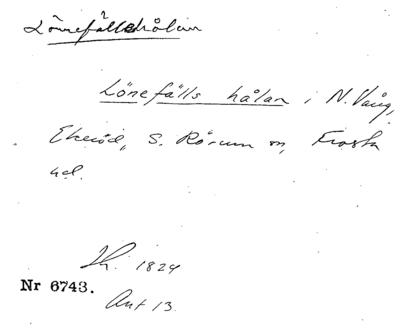 Lönefållshålan
Lönefålls hålan i N. Vång,
Ekeröd, S. Rörum sn, Frosta
hd.
Lh. 1824
Nr 6743.
Ant 13.